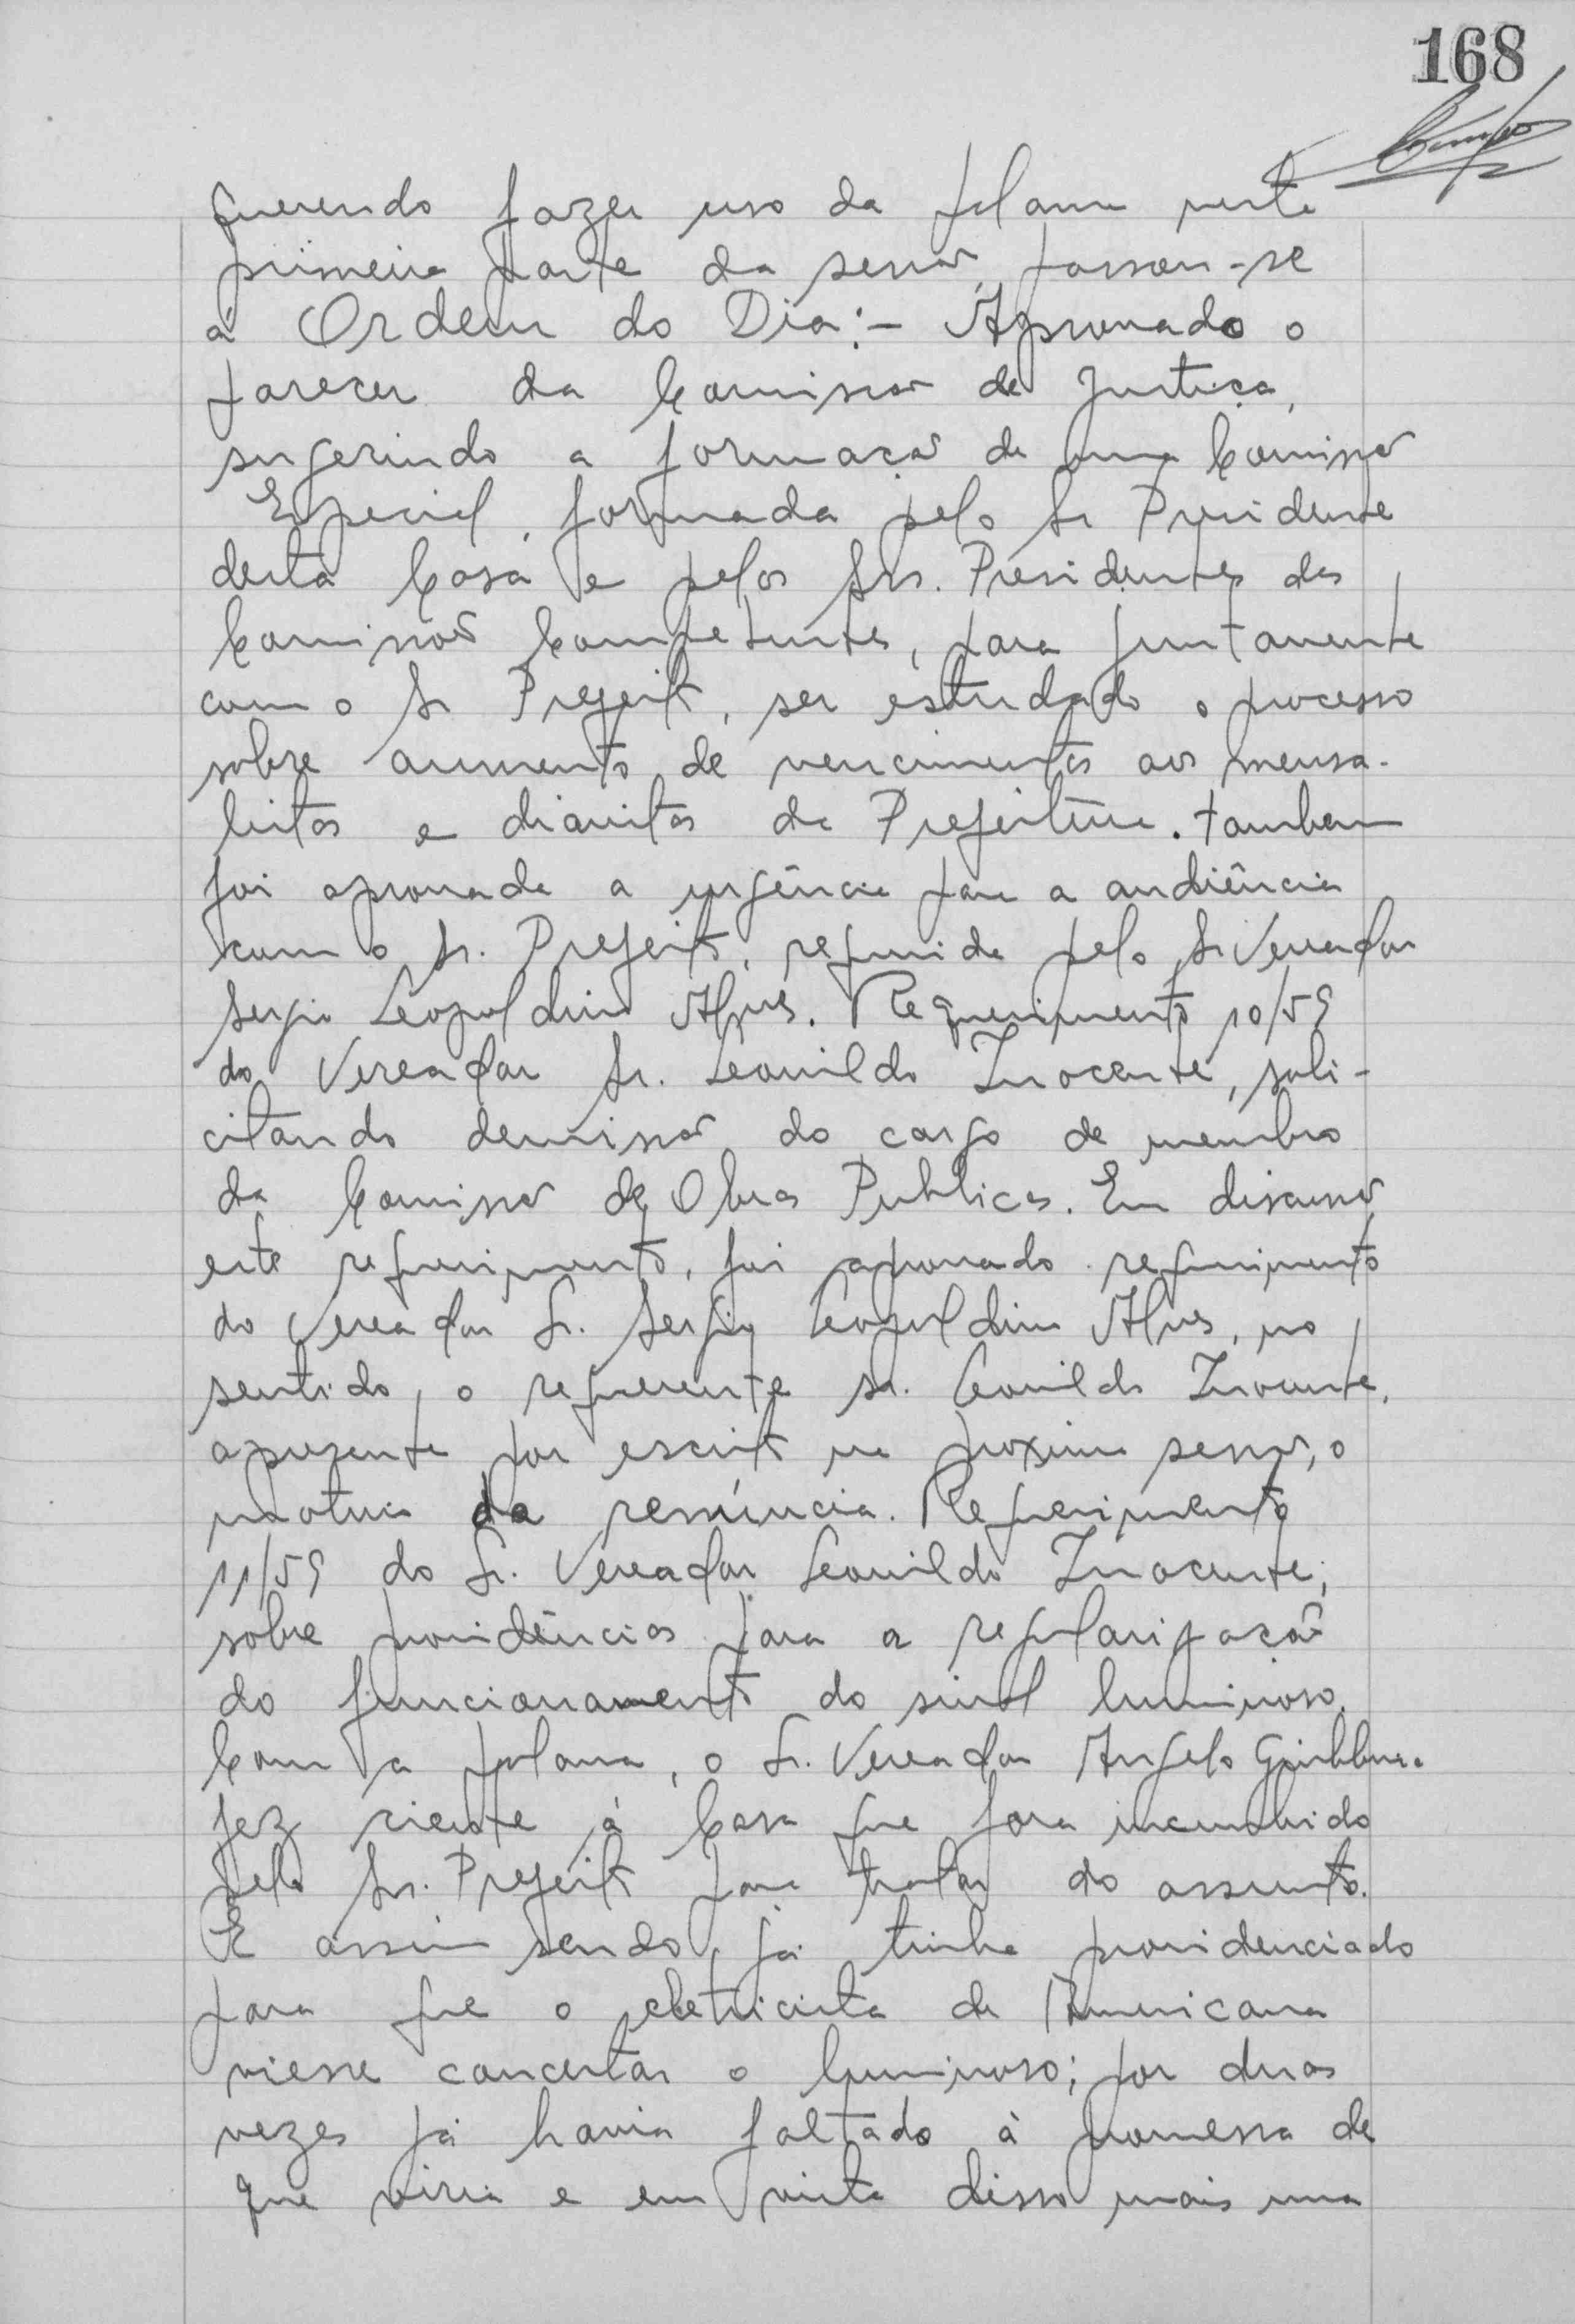 168
querendo fazer uso da palavra nesta
primeira parte da sessão, passou-se
á Ordem do Dia:- Aprovado o
parecer da Comissão de Justiça,
sugerindo a formação de uma Comissão
Especial, formada pelo Sr Presidente
desta Casa e pelos Srs. Presidentes das
Comissões Competentes, para juntamente
com o Sr Prefeito, ser estudado o processo
sobre aumento de vencimentos aos mensa-
listas e diaristas da Prefeitura. também
foi aprovada a urgência para a audiência
com o Sr. Prefeito, requerida pelo Sr Vereador
Sergio Leopoldino Alves. Requerimento 10/59
do Vereador Sr. Leonildo Inocente, soli-
citando demissão do cargo de membro
da Comissão de Obras Publicas. Em discussão
este requerimento, foi aprovado requerimento
do Vereador Sr. Sergio Leopoldino Alves, no
sentido, o requerente sr. Leonildo Inocente,
apresente por escrito na proxima sessão, o
motivo da renúncia. Requerimento
11/59 do Sr. Vereador Leonildo Inocente,
sobre providências para a regularização
do funcionamento do sinal luminoso.
Com a palavra, o Sr. Vereador Angelo
fez ciente á Casa que fora incumbido
pelo Sr. Prefeito para tratar do assunto.
E assim sendo, já tinha providenciado
para que o eletricista de Americana
viesse concertar o luminoso; por duas
vezes já havia faltado à promessa de
que viria e em vista disso mais uma